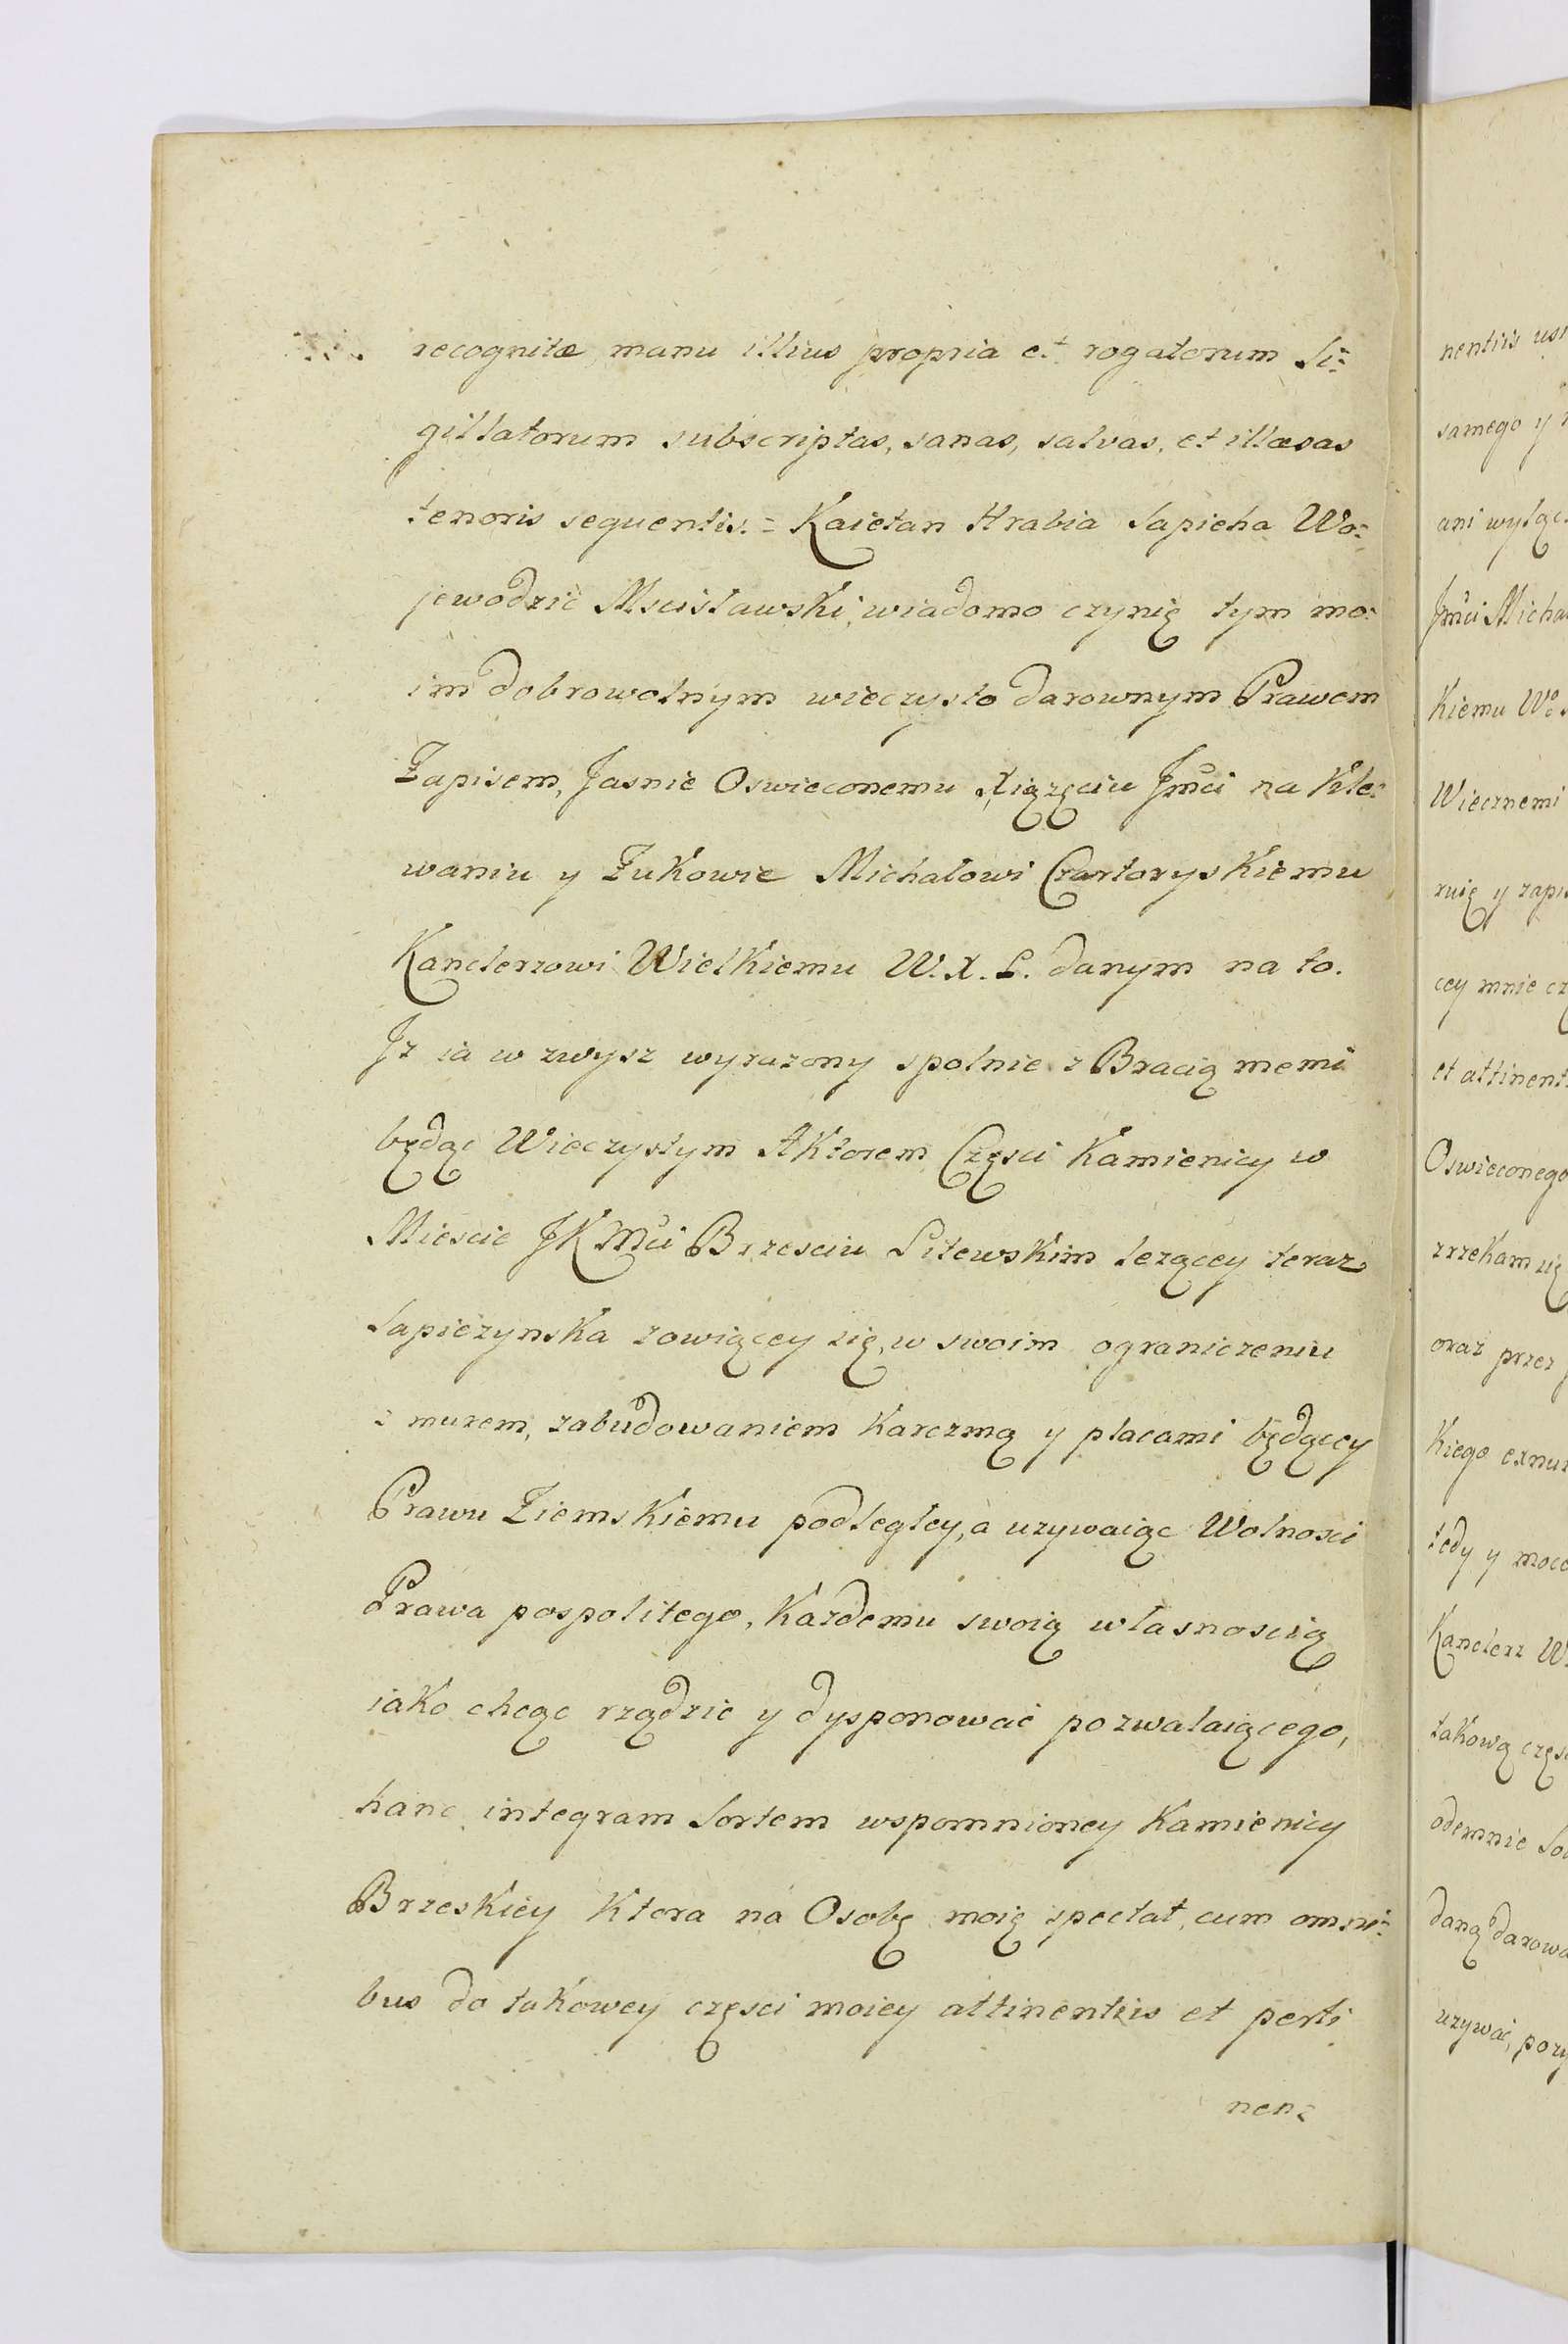 recognitæ manu illius propria et rogatorum Si=
gillatorum subscriptas, sanas, salvas, et illæsas
tenoris sequentis. = Kaietan Hrabia Sapieha Wo=
jewodzic Mscisławski, wiadomo czynię tym mo=
im dobrowolnym wieczysto darownym Prawem
Zapisem, Jasnie Oswieconemu Xiążęciu Jmci na Kle=
waniu y Żukowie Michałowi Czartoryskiemu
Kanclerzowi Wielkiemu W. X. L. danym na to.
Jz ia w zwysz wyrazony spolnie z Bracią memi
będąc Wieczystym Aktorem Części Kamienicy w
Miescie JK Mci Brzesciu Litewskim lezącey teraz
Sapiezynska zowiącey się, w swoim ograniczeniu
z murem, zabudowaniem Karczmą y placami będącey
Prawu Ziemskiemu podległey, a uzywaiąc Wolnosci
Prawa pospolitego, Kazdemu swoią własnoscią
iako chcąc rządzic y dysponować pozwalaiącego,
hanc integram Sortem wspomnioney Kamienicy
Brzeskiey Ktora na Osobę moię spectat, cum omni=
bus do takowey części moiey attinentiis et perti
nen=
nentiis usu
samego y
ani wyłąc
Jmci Micha
Kiemu Wo
Wiecznemi
ruię y zapis
cey mnie cz
et attinent
Oswieconego
zrzekam się
oraz przez
Kiego exnu
tedy y moco
Kanclerz W
takową częs
odemnie So
daną darowa
uzywać, pozy